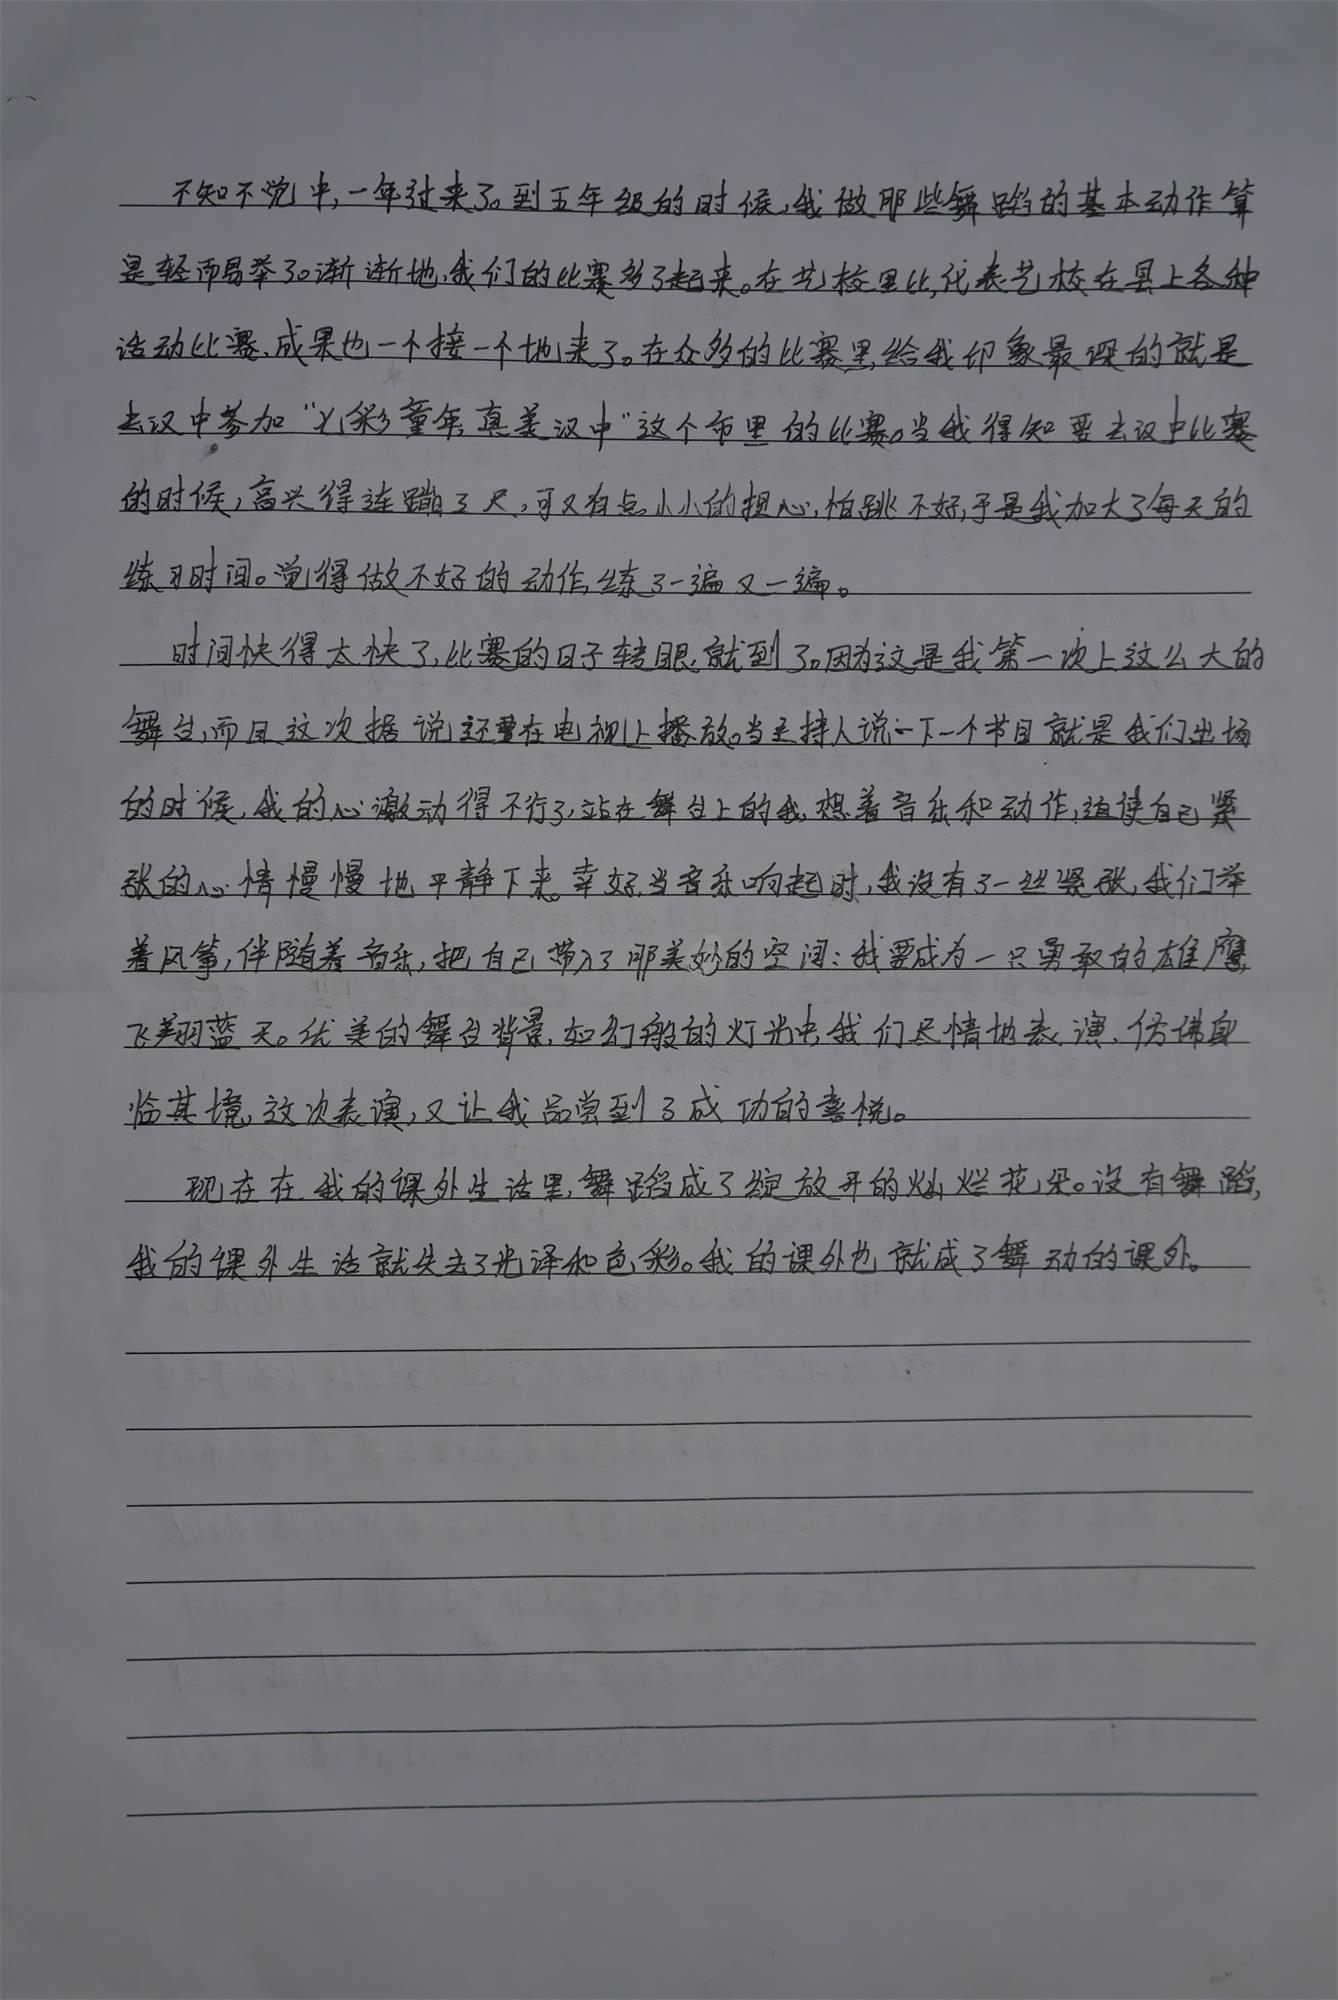 不知不觉中,一年过来了。到五年级的时候,我做那些舞蹈的基本动作算
是轻而易举了。渐渐地,我们的比赛多了起来。在艺校里比,代表艺校在县上各种
活动比赛,成果也一个接一个地来了。在众多的比赛里,给我印象最深的就是
去汉中参加“七彩童年,真美汉中”这个市里的比赛。当我得知要去汉中比赛
的时候,高兴得连蹦了尺,可又有点小小的担心,怕跳不好,于是我加大了每天的
练习时间。觉得做不好的动作,练了一遍又一遍。
时间快得太快了,比赛的日子转眼就到了。因为这是我第一次上这么大的
舞台,而且这次据说还要在电视上播放。当主持人说一下一个节目就是我们出场
的时候,我的心激动得不行了,站在舞台上的我,想着音乐和动作,迫使自己紧
张的心情慢慢地平静下来。幸好,当音乐响起时,我没有了一丝紧张,我们举
着风筝,伴随着音乐,把自己带入了那美妙的空间:我要成为一只勇敢的雄鹰,
飞翔蓝天。优美的舞台背景,如幻般的灯光中,我们尽情地表演,仿佛身
临其境,这次表演,又让我品尝到了成功的喜悦。
现在在我的课外生活里,舞蹈成了绽放开的灿烂花朵。没有舞蹈,
我的课外生活就失去了光泽和色彩。我的课外也就成了舞动的课外。